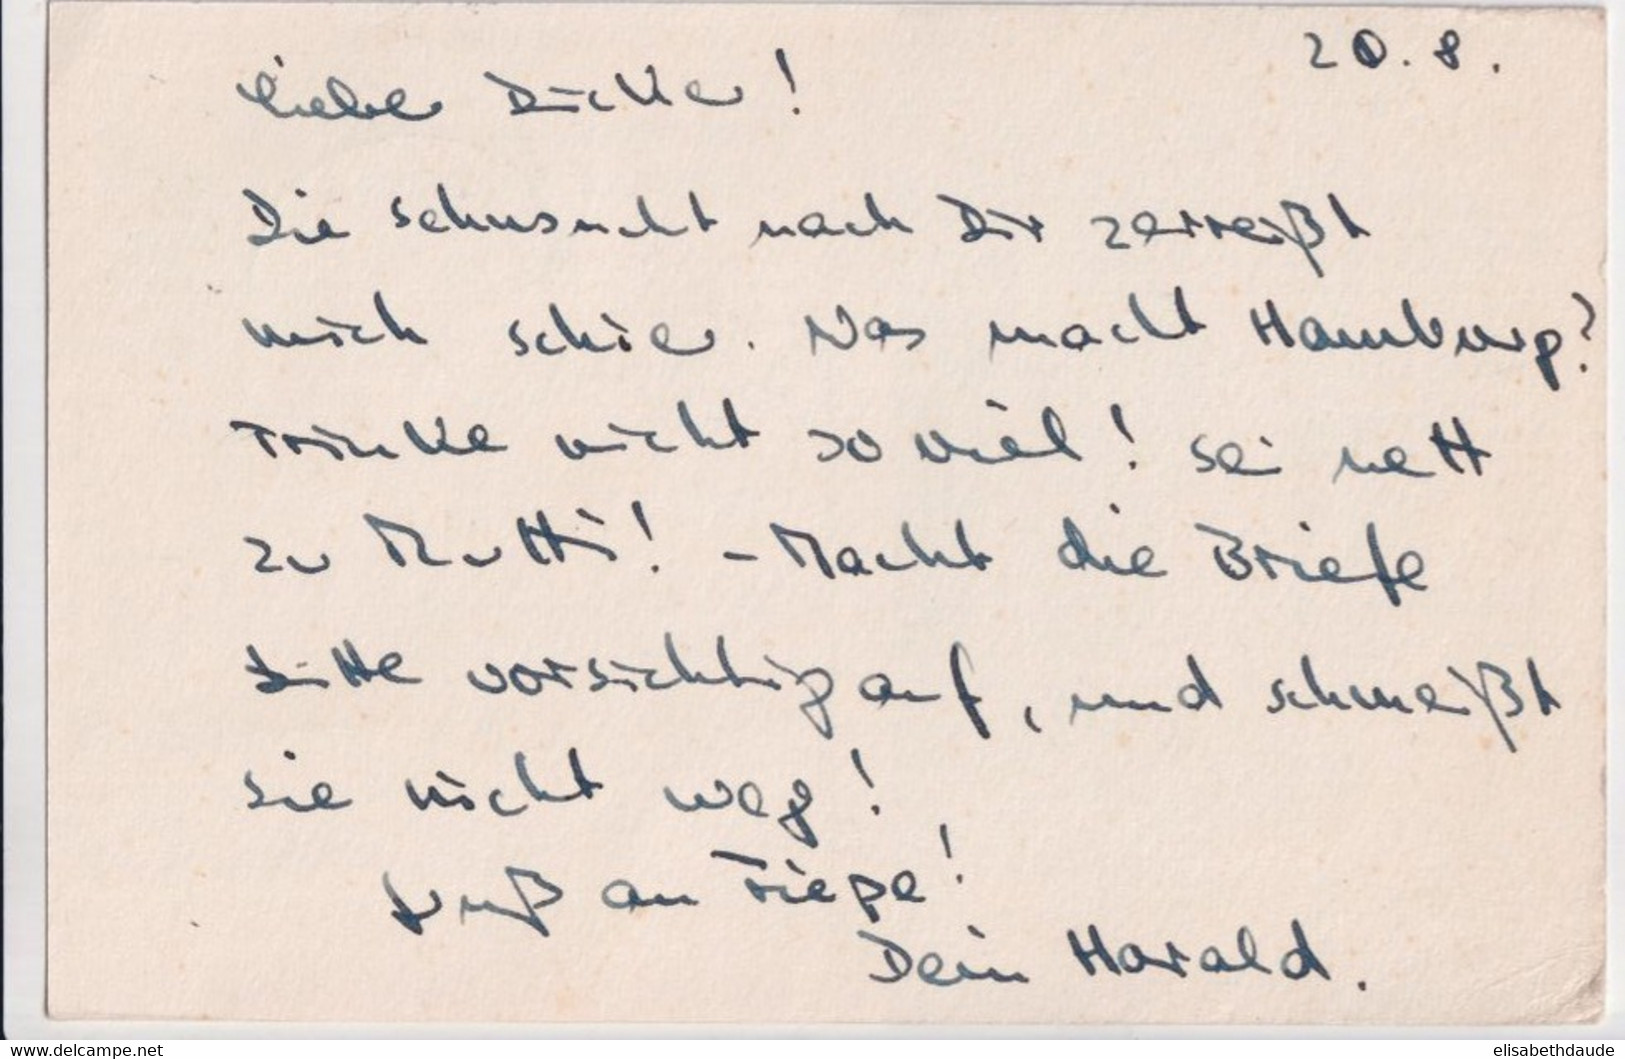 20.8.
Liebe Dicke!
Die Sehnsucht nach Dir zerreißt
mich schier. Was macht Hamburg?
Trinke nicht so viel! Sei nett
zu Mutti! - Macht die Briefe
bitte vorsichtig auf, und schmeißt
sie nicht weg!
Gruß an Fiepe!
Dein Harald.
www.delcampe.net
elisabethdaude